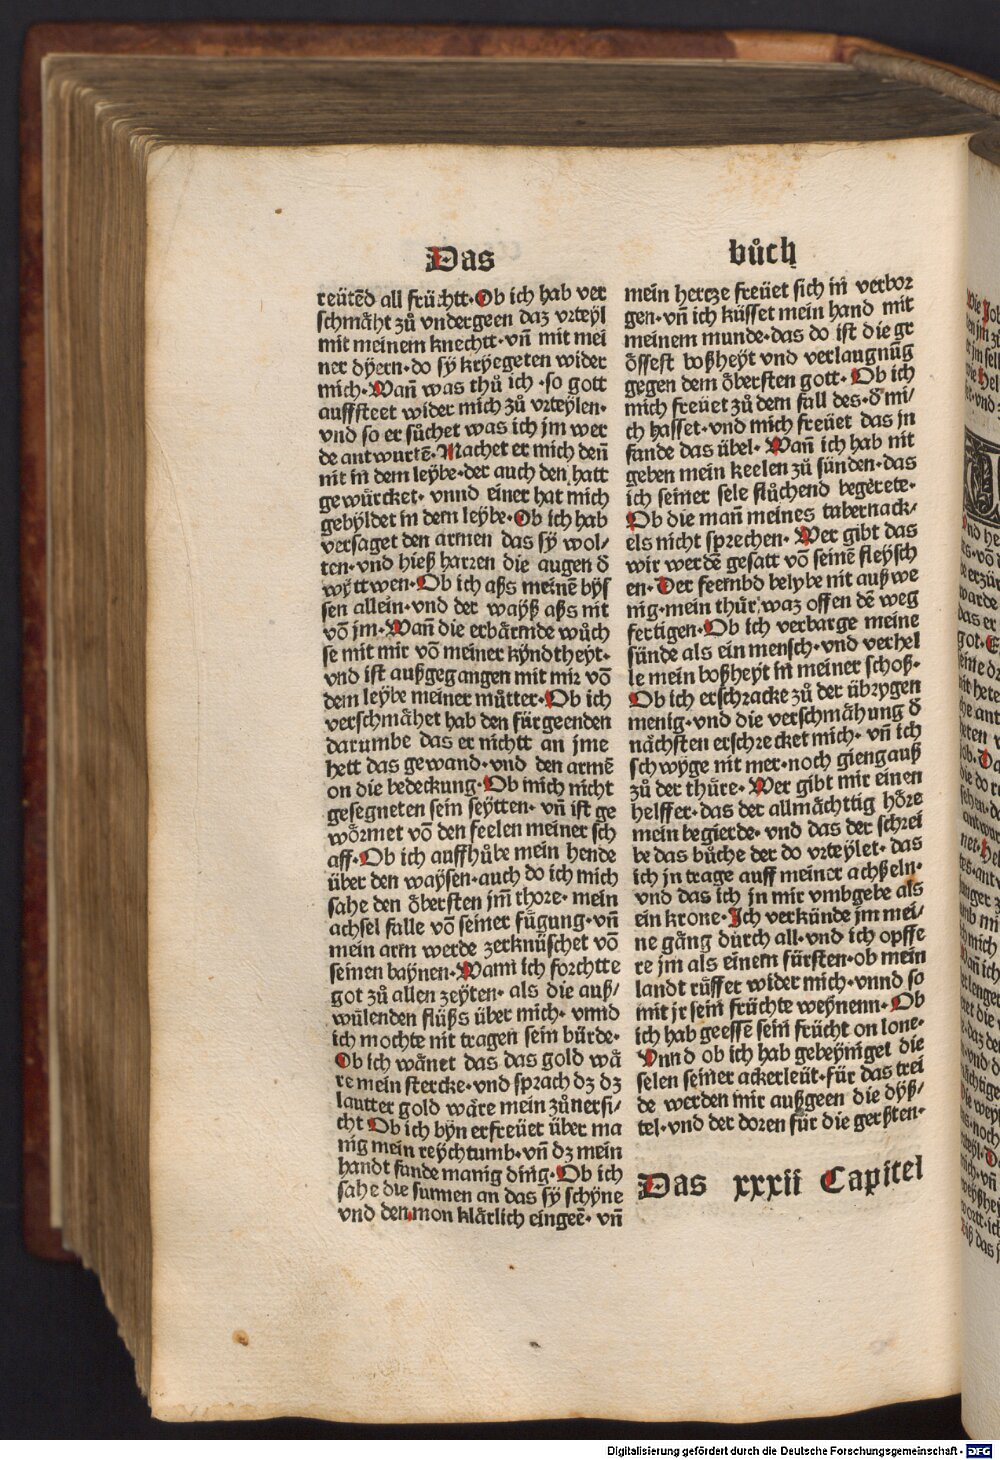 Das
reütēd all früchtt·Ob ich hab ver
schmäht zů vndergeen daz vrteyl
mit meinem knechtt·vn̄ mit mei
ner dyern·do sÿ kryegeten wider
mich·Wan̄ was thů ich·so gott
auffsteet wider mich zů vrteylen·
vnd so er sůchet was ich jm wer
de antwurtē·Machet er mich den̄
nit in dem leybe·der auch den hatt
gewürcket· vnnd einer hat mich
gebyldet in dem leybe·Ob ich hab
versaget den armen das sÿ wol/
ten·vnd hieß harren die augen d̄
wyttwen·Ob ich aß meinē byſ
sen allein·vnd der wayß aß nit
vō jm·Wan̄ die erbärmde wůch
se mit mir vō meiner kyndtheyt·
vnd ist außgegangen mit mir vō
dem leybe meiner můtter·Ob ich
verschmähet hab den fürgeenden
darumbe das er nichtt an jme
hett das gewand·vnd den armē
on die bedeckung·Ob mich nicht
gesegneten sein seytten· vn̄ ist ge
wörmet vō den feelen meiner sch
aff·Ob ich auffhůbe mein hende
über den waysen·auch do ich mich
sahe den öbersten jm̄ thore·mein
achsel falle vō seiner fügung·vn̄
mein arm werde zerknüschet vō
seinen baynen·Wann ich forchtte
got zů allen zeyten· als die auß/
wülenden flüß über mich· vnnd
ich mochte nit tragen sein bürde·
Ob ich wänet das das gold wä
re mein stercke·vnd sprach dz dz
lautter gold wäre mein zůuersi/
cht Ob ich byn erfreüet über ma
nig mein reychtumb·vn̄ dz mein
handt fande manig ding·Ob ich
sahe die sunnen an das sÿ schyne
vnd den mon klärlich eingeē· vn̄
bůch
mein hertze freüet sich in verbor
gen·vn̄ ich küsset mein hand mit
meinem munde·das do ist die gr
össest boßheyt vnd verlaugnūg
gegen dem öbersten gott·Ob ich
mich freüet zů dem fall des·d̄ mi/
ch hasset·vnd mich freüet das jn
fande das übel·Wan̄ ich hab nit
geben mein keelen zů sünden·das
ich seiner sele flůchend begerete·
Ob die man̄ meines tabernack/
els nicht sprechen· Wer gibt das
wir werdē gesatt vō seinē fleysch
en·Der feembd belybe nit außwe
nig·mein thür waz offen dē weg
fertigen·Ob ich verbarge meine
sünde als ein mensch·vnd verhel
le mein boßheyt in meiner schoß·
Ob ich erschracke zů der übrygen
menig·vnd die verschmähung d̄
nächsten erschrecket mich· vn̄ ich
schwyge nit mer·noch gieng auß
zů der thüre·Wer gibt mir einen
helffer·das der allmächttig höre
mein begierde·vnd das der schrei
be das bůche der do vrteylet·das
ich jn trage auff meiner achßeln·
vnd das ich in mir vmbgebe als
ein krone·Ich verkünde jm mei/
ne gäng durch all·vnd ich opffe
re jm als einem fürsten·ob mein
landt růffet wider mich·vnnd so
mit jr sein früchte weynenn·Ob
ich hab geessē sein frücht on lone·
Vnnd ob ich hab gebeyniget die
selen seiner ackerleüt·für das trei
de werden mir außgeen die dyß/
tel·vnd der doren für die gerßten·
Das xxxii Capitel
Digitalisierung gefördert durch die Deutsche Forschungsgemeinschaft - DFG